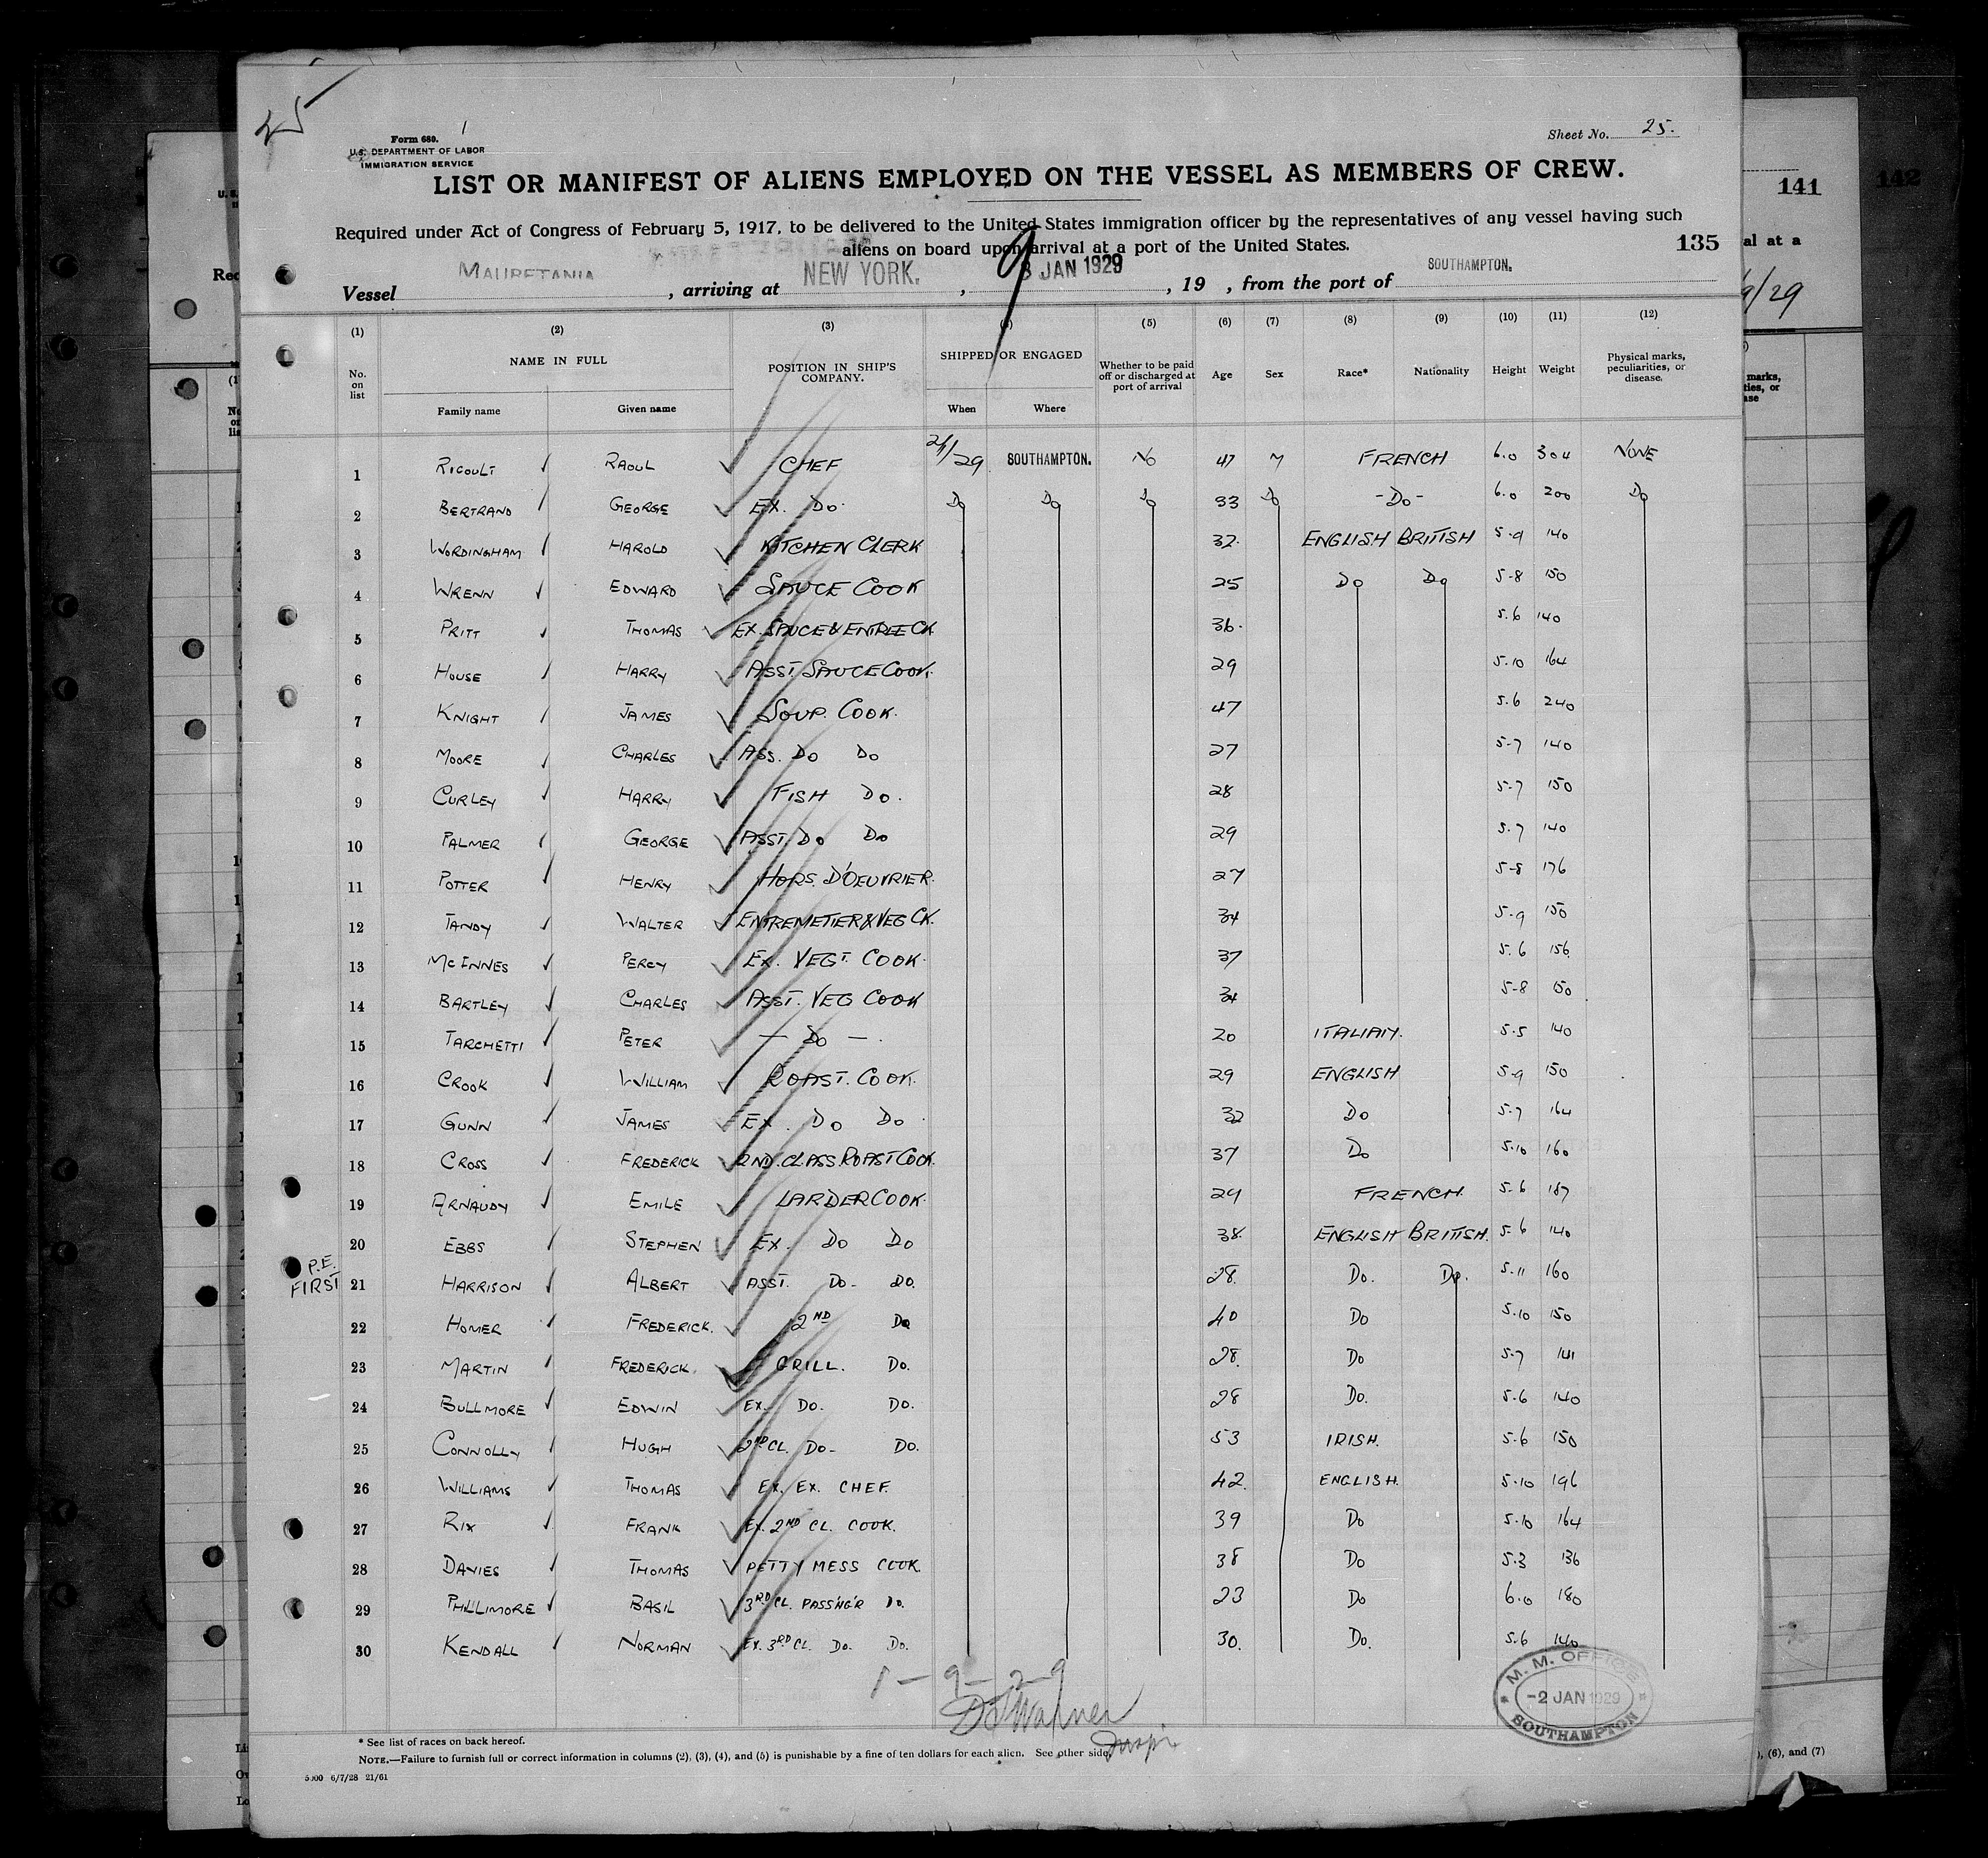 25
Form 680.
U.S. DEPARTMENT OF LABOR
IMMIGRATION SERVICE
Sheet No. 25.
LIST OR MANIFEST OF ALIENS EMPLOYED ON THE VESSEL AS MEMBERS OF CREW.
Required under Act of Congress of February 5, 1917, to be delivered to the United States immigration officer by the representatives of any vessel having such
aliens on board upon arrival at a port of the United States.
135
Vessel MAURETANIA, arriving at NEW YORK., 9 JAN 1929, 19 , from the port of SOUTHAMPTON.
(1) (2) (3) (4) (5) (6) (7) (8) (9) (10) (11) (12)
No. on list NAME IN FULL Family name Given name POSITION IN SHIP'S COMPANY. SHIPPED OR ENGAGED When Where Whether to be paid off or discharged at port of arrival Age Sex Race* Nationality Height Weight Physical marks, peculiarities, or disease.
1 RIGOULT RAOUL CHEF 2/1/29 SOUTHAMPTON. NO 47 M FRENCH 6.0 304 NONE
2 BERTRAND GEORGE EX. DO. DO DO DO 33 DO -DO- 6.0 200 DO
3 WORDINGHAM HAROLD KITCHEN CLERK 32. ENGLISH BRITISH 5-9 140
4 WRENN EDWARD SAUCE COOK 25 DO DO 5-8 150
5 PRITT THOMAS EX. SAUCE & ENTREE CK. 36. 5.6 140
6 HOUSE HARRY ASST SAUCE COOK. 29 5.10 164
7 KNIGHT JAMES SOUP. COOK. 47 5.6 240
8 MOORE CHARLES ASS. DO DO 27 5-7 140
9 CURLEY HARRY FISH DO. 28 5-7 150
10 PALMER GEORGE ASST. DO DO 29 5.7 140
11 POTTER HENRY HORS. D'OEUVRIER. 27 5-8 176
12 TANDY WALTER ENTREMETIER & VEG CK. 34 5.9 150
13 MCINNES PERCY EX. VEGT. COOK. 37 5.6 156.
14 BARTLEY CHARLES ASST. VEG COOK 34 5-8 150
15 TARCHETTI PETER — DO — . 20 ITALIAN. 5.5 140
16 CROOK WILLIAM ROAST. COOK. 29 ENGLISH 5-9 150
17 GUNN JAMES EX. DO DO 32 DO 5.7 164
18 CROSS FREDERICK 2ND. CLASS ROAST COOK. 37 DO 5.10 160
19 ARNAUDY EMILE LARDER COOK. 29 FRENCH. 5.6 187
20 EBBS STEPHEN EX. DO DO 38. ENGLISH BRITISH. 5.6 140
P.E. FIRST 21 HARRISON ALBERT ASST. DO- DO. 28. DO. DO. 5.11 160
22 HOMER FREDERICK. 2ND DO 40 DO 5.10 150
23 MARTIN FREDERICK. GRILL. DO. 28. DO 5.7 141
24 BULLMORE EDWIN EX. DO. DO. 28 DO. 5.6 140
25 CONNOLLY HUGH 2ND CL. DO- DO. 53 IRISH. 5.6 150
26 WILLIAMS THOMAS EX. EX. CHEF. 42. ENGLISH. 5.10 196
27 RIX FRANK EX. 2ND CL. COOK. 39 DO 5.10 164
28 DAVIES THOMAS PETTY MESS COOK. 38 DO 5.3 136
29 PHILLIMORE BASIL 3RD CL. PASS'NG'R DO. 23 DO 6.0 180
30 KENDALL NORMAN EX. 3RD CL. DO. DO. 30. DO. 5.6 140
1-9-29
M. M. OFFICE
-2 JAN 1929
SOUTHAMPTON
* See list of races on back hereof.
NOTE.—Failure to furnish full or correct information in columns (2), (3), (4), and (5) is punishable by a fine of ten dollars for each alien. See other side.
5000 6/7/28 21/61
141
142
al at a
9/29
marks,
ties, or
ase
), (6), and (7)